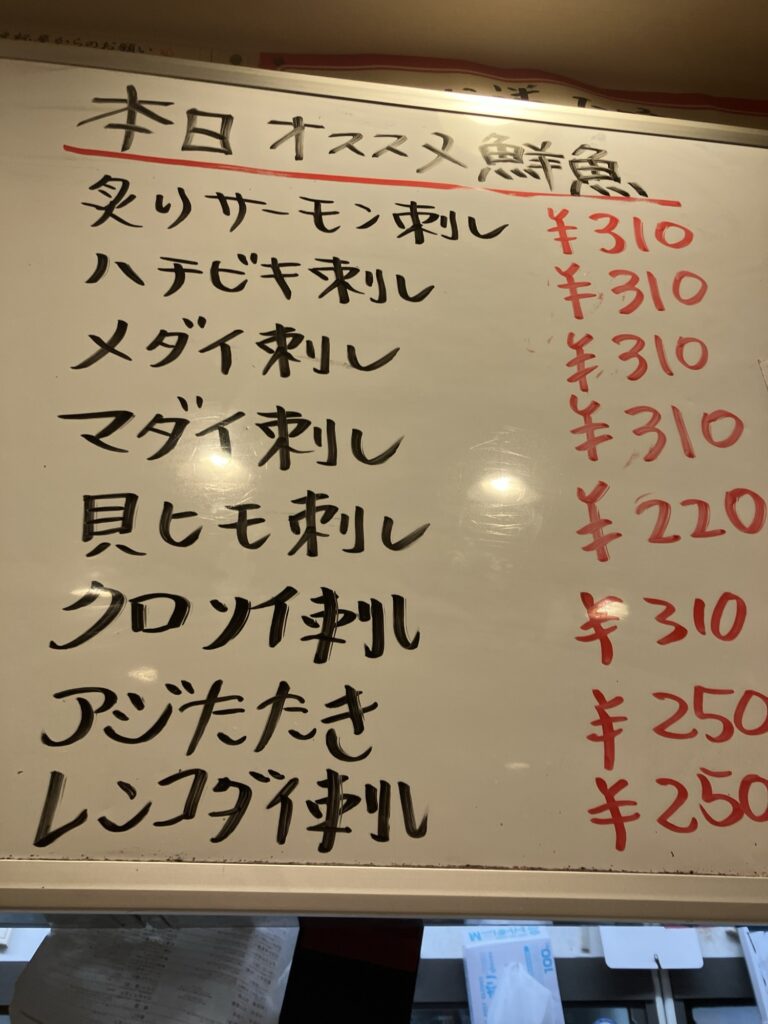 からのお願い
本日オススメ鮮魚
炙りサーモン刺し ¥310
ハチビキ刺し ¥310
メダイ刺し ¥310
マダイ刺し ¥310
貝ヒモ刺し ¥220
クロソイ刺し ¥310
アジたたき ¥250
レンコダイ刺し ¥250